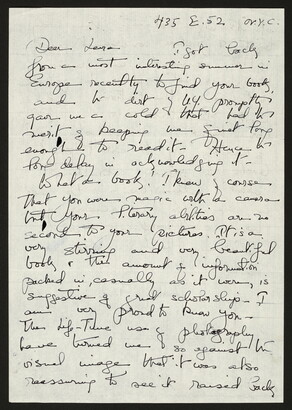 435 E. 52 N.Y.C.
Dear Lena I got back
from a most interesting summer in
Europe recently to find your book,
and the dirt of N.Y. promptly
gave me a cold that had the
merit of keeping me quiet long
enough to read it. Hence the
long delay in acknowledging it.
What a book! I knew of course
that you were magic with a camera
but your literary abilities are no
second to your pictures. It is a
very stirring and very beautiful
book & the amount of information
packed in, casually as it were, is
suggestive of great scholarship. I
am very proud to know you.
This life-time use of photography
have turned me so against the
visual image that it was also
reassuring to see it raised back